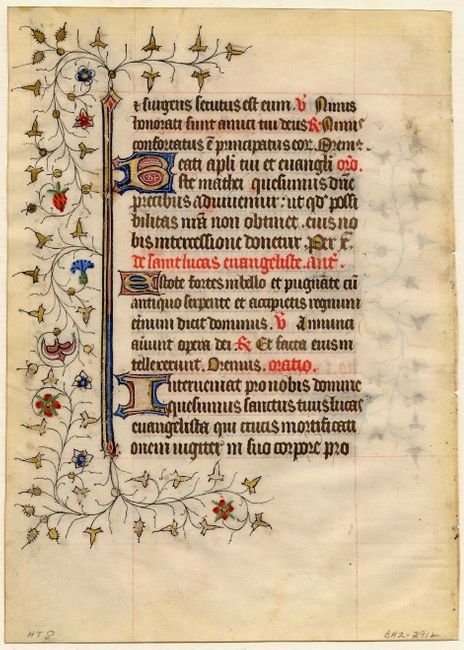 & surgens secutus est eum. ℣ Nimis
honorati sunt amici tui deus ℟ Nimis
confortatus ē principatus eor. Orem⁹.
Beati apli tui et euangli oro.
ste mathei quesumus dñe
precibus adiuuemur: ut qd possi
bilitas nr̄a non obtinet. eius no
bis intercessione donetur. Per x̄.
de saint lucas euangeliste. ant̄.
Estote fortes in bello et pugnate cū
antiquo serpente et accipietis regnum
eternum dicit dominus. ℣ Annunci
auerunt opera dei ℟ Et facta eius in
tellexerunt. Oremus. oratio.
Interueniat pro nobis domine
quesumus sanctus tuus lucas
euangelista qui crucis mortificati
onem iugiter in suo corpore pro
HT8 BH2-2912